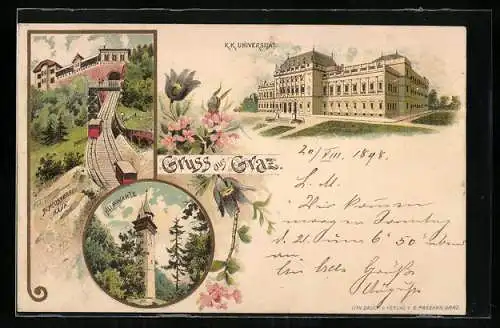 K.K. UNIVERSITÄT
Gruss aus Graz.
SCHLOSSBERG
BAHN
HILMWARTE
20/VIII. 1898.
L. M.
Wir kommen
morgen Sonntag
d. 21. um 6 50 abend
an
Grüße
LITH. DRUCK u. VERLAG v.
GRAZ.